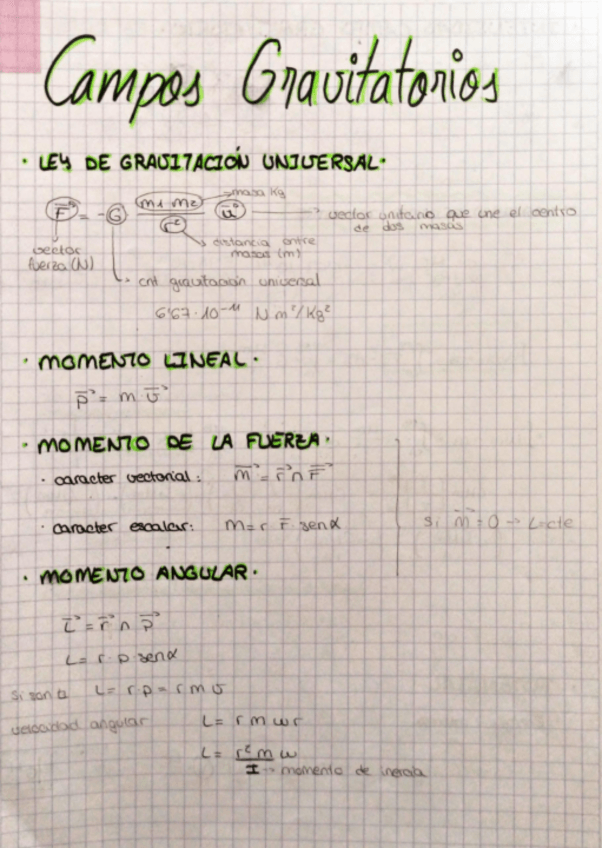 Campos Gravitatorios
· LEY DE GRAVITACIÓN UNIVERSAL·
F⃗ = -G m1 m2 / r² u⃗
masa Kg
vector unitario que une el centro
de dos masas
vector
fuerza (N)
distancia entre
masas (m)
cnt gravitación universal
6'67·10⁻¹¹ N m²/Kg²
· MOMENTO LINEAL·
p⃗ = m v⃗
· MOMENTO DE LA FUERZA·
· caracter vectorial: m⃗ = r⃗ ∧ F⃗
· caracter escalar: m = r F senα
si m⃗ = 0 → L=cte
· MOMENTO ANGULAR·
L⃗ = r⃗ ∧ p⃗
L = r · p · senα
si son ⊥ L = r·p = r m v
velocidad angular L = r m ω r
L = r² m ω
I → momento de inercia